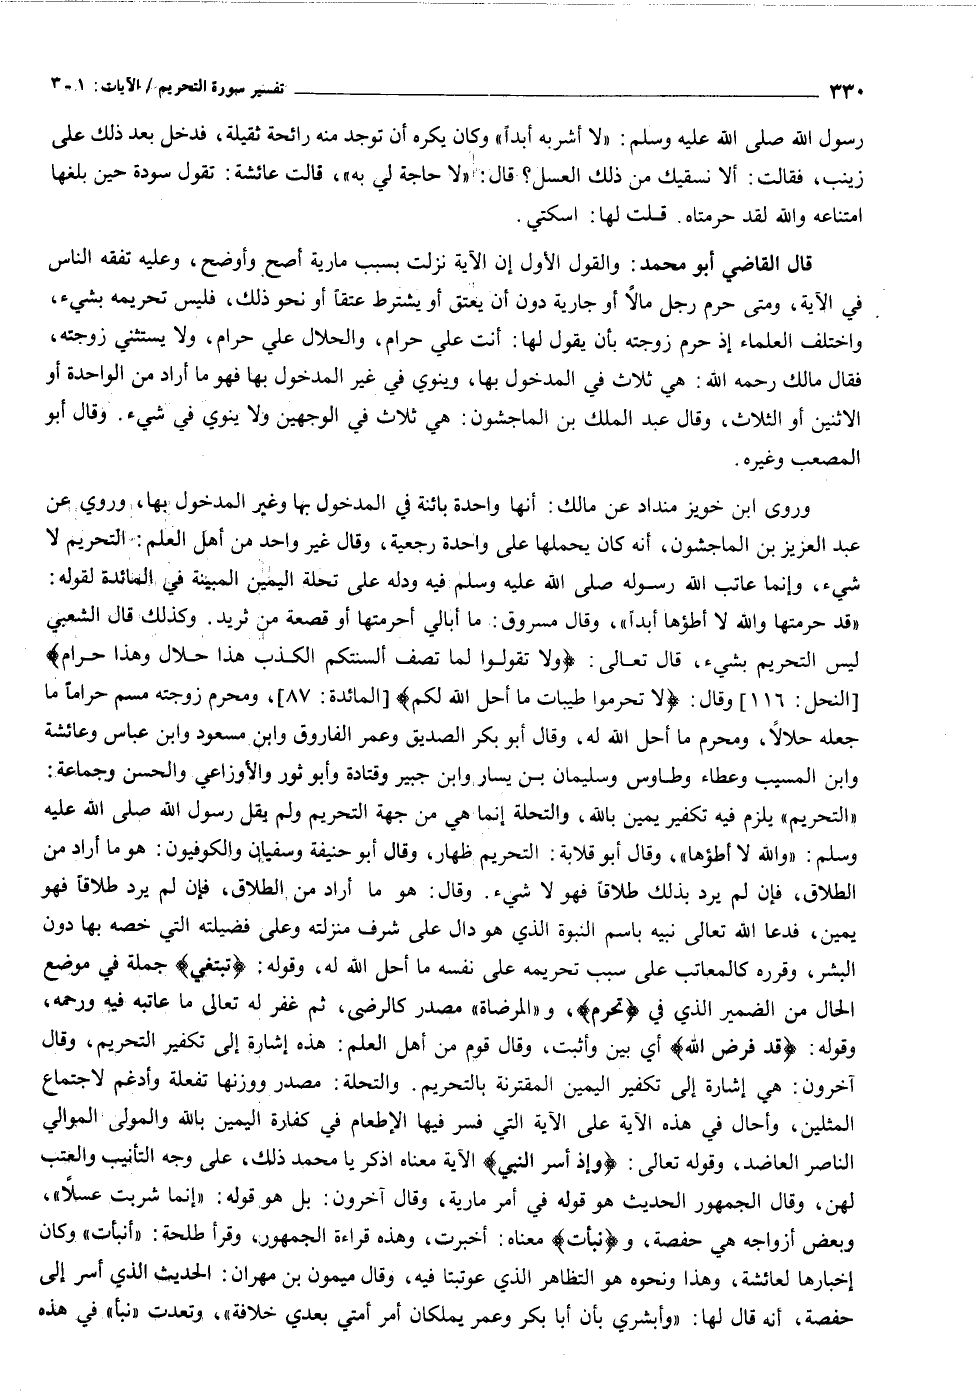 ٣٣٠ ــــــــــــــــــــــــ تفسير سورة التحريم / الآيات: ١ - ٣
رسول الله صلى الله عليه وسلم: «لا أشربه أبداً» وكان يكره أن توجد منه رائحة ثقيلة، فدخل بعد ذلك على
زينب، فقالت: ألا نسقيك من ذلك العسل؟ قال: «لا حاجة لي به»، قالت عائشة: تقول سودة حين بلغها
امتناعه والله لقد حرمتاه. قلت لها: اسكتي.
قال القاضي أبو محمد: والقول الأول إن الآية نزلت بسبب مارية أصح وأوضح، وعليه تفقه الناس
في الآية، ومتى حرم رجل مالاً أو جارية دون أن يعتق أو يشترط عتقاً أو نحو ذلك، فليس تحريمه بشيء،
واختلف العلماء إذ حرم زوجته بأن يقول لها: أنت علي حرام، والحلال علي حرام، ولا يستثني زوجته،
فقال مالك رحمه الله: هي ثلاث في المدخول بها، وينوي في غير المدخول بها فهو ما أراد من الواحدة أو
الاثنين أو الثلاث، وقال عبد الملك بن الماجشون: هي ثلاث في الوجهين ولا ينوي في شيء. وقال أبو
المصعب وغيره.
وروى ابن خويز منداد عن مالك: أنها واحدة بائنة في المدخول بها وغير المدخول بها، وروي عن
عبد العزيز بن الماجشون، أنه كان يحملها على واحدة رجعية، وقال غير واحد من أهل العلم: التحريم لا
شيء، وإنما عاتب الله رسوله صلى الله عليه وسلم فيه ودله على تحلة اليمين المبينة في المائدة لقوله:
«قد حرمتها والله لا أطؤها أبداً»، وقال مسروق: ما أبالي أحرمتها أو قصعة من ثريد. وكذلك قال الشعبي
ليس التحريم بشيء، قال تعالى: ﴿ولا تقولوا لما تصف ألسنتكم الكذب هذا حلال وهذا حرام﴾
[النحل: ١١٦] وقال: ﴿لا تحرموا طيبات ما أحل الله لكم﴾ [المائدة: ٨٧]، ومحرم زوجته مسم حراماً ما
جعله حلالاً، ومحرم ما أحل الله له، وقال أبو بكر الصديق وعمر الفاروق وابن مسعود وابن عباس وعائشة
وابن المسيب وعطاء وطاوس وسليمان بن يسار وابن جبير وقتادة وأبو ثور والأوزاعي والحسن وجماعة:
«التحريم» يلزم فيه تكفير يمين بالله، والتحلة إنما هي من جهة التحريم ولم يقل رسول الله صلى الله عليه
وسلم: «والله لا أطؤها»، وقال أبو قلابة: التحريم ظهار، وقال أبو حنيفة وسفيان والكوفيون: هو ما أراد من
الطلاق، فإن لم يرد بذلك طلاقاً فهو لا شيء. وقال: هو ما أراد من الطلاق، فإن لم يرد طلاقاً فهو
يمين، فدعا الله تعالى نبيه باسم النبوة الذي هو دال على شرف منزلته وعلى فضيلته التي خصه بها دون
البشر، وقرره كالمعاتب على سبب تحريمه على نفسه ما أحل الله له، وقوله: ﴿تبتغي﴾ جملة في موضع
الحال من الضمير الذي في ﴿تحرم﴾، و «المرضاة» مصدر كالرضى، ثم غفر له تعالى ما عاتبه فيه ورحمه،
وقوله: ﴿قد فرض الله﴾ أي بين وأثبت، وقال قوم من أهل العلم: هذه إشارة إلى تكفير التحريم، وقال
آخرون: هي إشارة إلى تكفير اليمين المقترنة بالتحريم. والتحلة: مصدر ووزنها تفعلة وأدغم لاجتماع
المثلين، وأحال في هذه الآية على الآية التي فسر فيها الإطعام في كفارة اليمين بالله والمولى الموالي
الناصر العاضد، وقوله تعالى: ﴿وإذ أسر النبي﴾ الآية معناه اذكر يا محمد ذلك، على وجه التأنيب والعتب
لهن، وقال الجمهور الحديث هو قوله في أمر مارية، وقال آخرون: بل هو قوله: «إنما شربت عسلاً»،
وبعض أزواجه هي حفصة، و ﴿نبأت﴾ معناه: أخبرت، وهذه قراءة الجمهور، وقرأ طلحة: «أنبأت» وكان
إخبارها لعائشة، وهذا ونحوه هو التظاهر الذي عوتبتا فيه، وقال ميمون بن مهران: الحديث الذي أسر إلى
حفصة، أنه قال لها: «وأبشري بأن أبا بكر وعمر يملكان أمر أمتي بعدي خلافة»، وتعدت «نبأ» في هذه